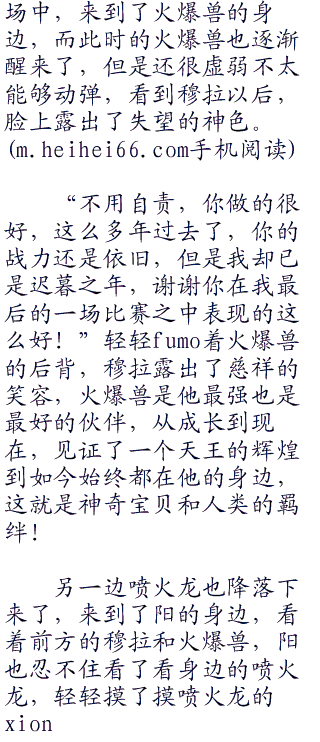 场中，来到了火爆兽的身
边，而此时的火爆兽也逐渐
醒来了，但是还很虚弱不太
能够动弹，看到穆拉以后，
脸上露出了失望的神色。
(m.heihei66.com手机阅读)
“不用自责，你做的很
好，这么多年过去了，你的
战力还是依旧，但是我却已
是迟暮之年，谢谢你在我最
后的一场比赛之中表现的这
么好！”轻轻fumo着火爆兽
的后背，穆拉露出了慈祥的
笑容，火爆兽是他最强也是
最好的伙伴，从成长到现
在，见证了一个天王的辉煌
到如今始终都在他的身边，
这就是神奇宝贝和人类的羁
绊！
另一边喷火龙也降落下
来了，来到了阳的身边，看
着前方的穆拉和火爆兽，阳
也忍不住看了看身边的喷火
龙，轻轻摸了摸喷火龙的
xion